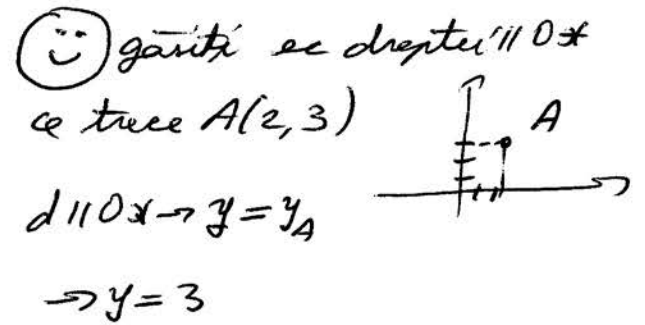 găsiți ec dreptei // Ox
ce trece A(2,3)
A
d // Ox → y = y_A
→ y = 3